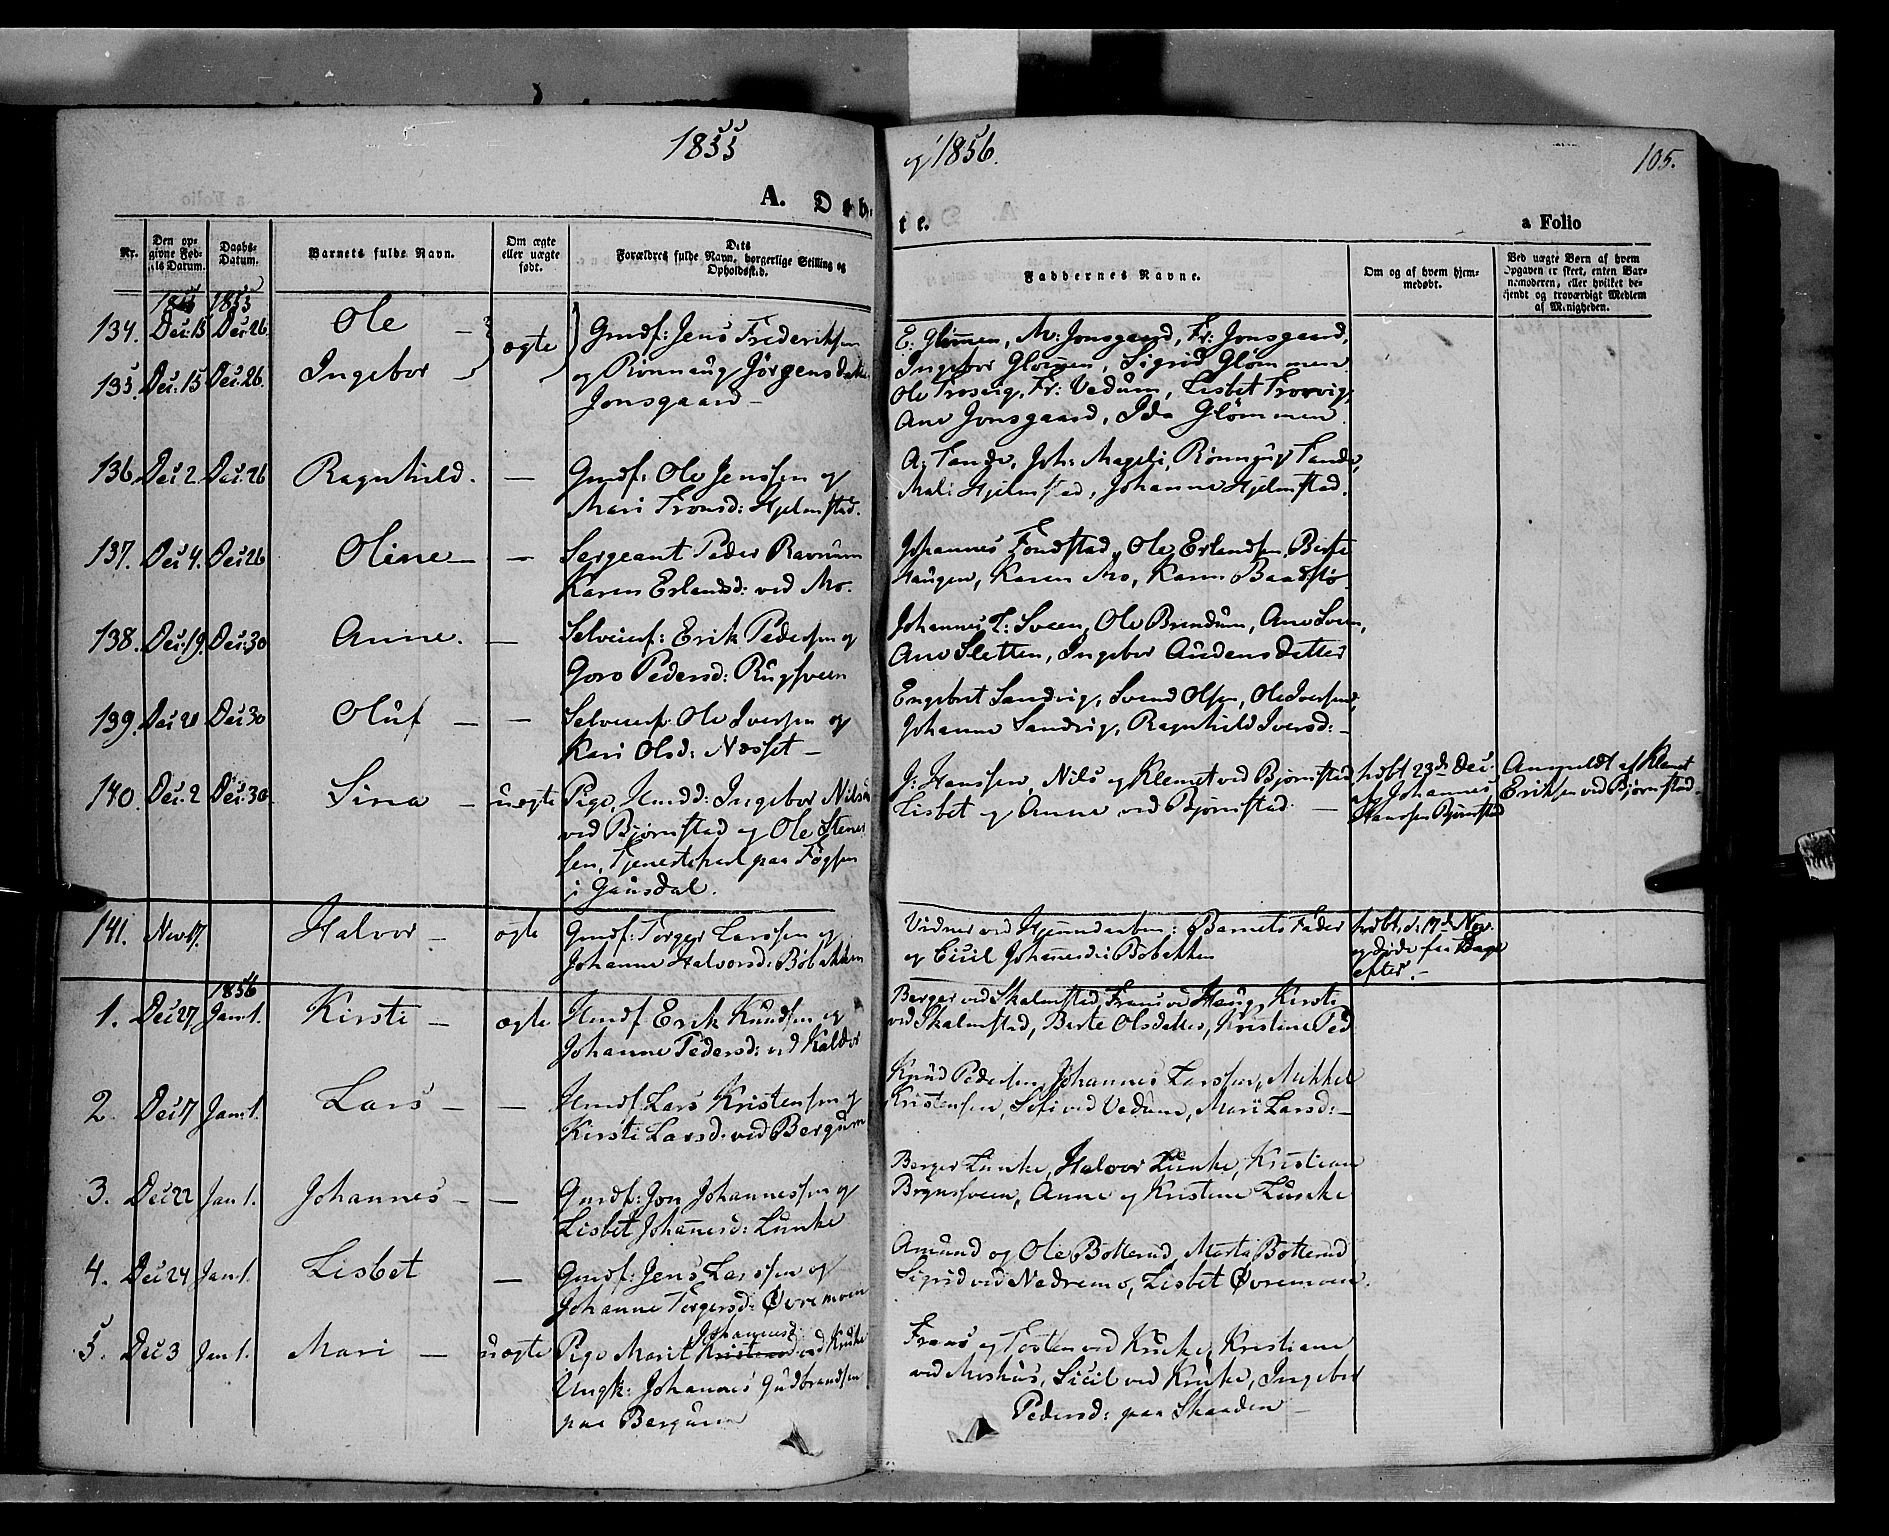 1855
og 1856.
105.
A. Døb-
te.
a Folio
Nr.
Den op-
givne Fød-
sels Datum.
Daabs-
Datum.
Barnets fulde Navn.
Om ægte
eller uægte
født.
Dets
Forældres fulde Navn, borgerlige Stilling og
Opholdssted.
Faddernes Navne.
Om og af hvem hjem-
medøbt.
Ved uægte Børn af hvem
Opgaven er skeet, enten Bar-
nemoderen, eller hvilket be-
kjendt og troværdigt Medlem
af Menigheden.
1855 1855
134. Dec. 15 Dec. 26 Ole —
135. Dec. 15 Dec. 26. Ingebor —
ægte
Gmdf: Jens Frederiksen
og Rønnaug Jörgensdatter
Jonsgaard —
E. Glømmen, M: Jonsgaard, Fr: Jonsgaard,
Ingebor Glømmen, Sigrid Glømmen
Ole Trosvig, Fr: Vedum, Lisbet Trosvig,
Ane Jonsgaard, Ida Glömmen.
136. Dec 2. Dec. 26 Ragnhild. —
Gmdf: Ole Jenssen og
Mari Tronsd: Hjelmstad.
A. Tande, Joh: Mageli, Rönnaug Tande,
Mali Hjelmstad, Johanne Hjelmstad.
137. Dec 4. Dec 26 Oline — —
Sergeant Peder Ravnum
Karen Erlandsd: ved Mo.
Johannes Fondstad, Ole Erlandsen, Berte
Haugen, Karen Mo, Karen Baadstø
138. Dec. 19. Dec. 30 Anne. —
Selveierf: Erik Pedersen og
Goro Pedersd: Rugsveen
Johannes T: Sveen, Ole Brendum, Ane Sveen,
Ane Sletten, Ingebor Audensdatter
139. Dec 20 Dec. 30 Oluf — —
Selveierf. Ole Iversen og
Kari Olsd: Næsset —
Engebret Sandvig, Svend Olsen, Ole Iversen,
Johanne Sandvig, Ragnhild Iversd: —
140. Dec. 2 Dec. 30 Sina — uægte
Pige, Hmdd: Ingebor Nilsd
ved Bjørnstad og Ole Stener-
sen, Tjenestekarl paa
i Gausdal.
J: Hanssen, Nils og Klemet ved Bjørnstad
Lisbet og Anne ved Bjørnstad. —
døbt 23d Dec.
af Johannes
Hanssen Bjørnstad
Anmeldt af Klemet
Eriksen ved Bjørnstad.
141. Nov 17. Halvor — ægte
Gmdf: Torger Larssen og
Johanne Halvorsd: Böbakken
Vidner ved Hjemmedaaben: Barnets Fader
og Cicil Johannesd: Böbakken
døbt d: 17d Nov.
og døde faa Dage
efter. —
1856
1. Dec 27 Jan. 1. Kirsti — ægte
Hmdf Erik Knudsen og
Johanne Pedersd: ved Kaldor
Berger ved Skalmstad, Frans ved Haug, Kirsti
ved Skalmstad, Berte Olsdatter, Kristine Ped
2. Dec 17 Jan. 1. Lars — —
Hmdf. Lars Kristensen og
Kirsti Larsd: ved Bergum
Knud Pedersen, Johannes Larssen, Mikkel
Kristensen, Sofi ved Vedum, Mari Larsd: —
3. Dec 22 Jan 1. Johannes — —
Gmdf: Jon Johannessen og
Lisbet Johannesd: Lunke
Berger Lunke, Halvor Lunke, Kristian
Anne og Kristine Lunke
4. Dec 24 Jan. 1. Lisbet —
Gmdf: Jens Larssen og
Johanne Torgersd: Øvremoen
Amund og Ole Botterud, Marta Botterud
Sigrid ved Nedremo, Lisbet Øvremoen.
5. Dec 3 Jan 1. Mari — uægte
Johannesd
Pige Marit ved Kruke
Ungk: Johannes Gudbrandsen
paa Bergum
Frans og Torsten ved Kruke, Kristiane
ved Moshus, Sicil ved Kruke, Ingebor
Pedersd: paa Skaaden —